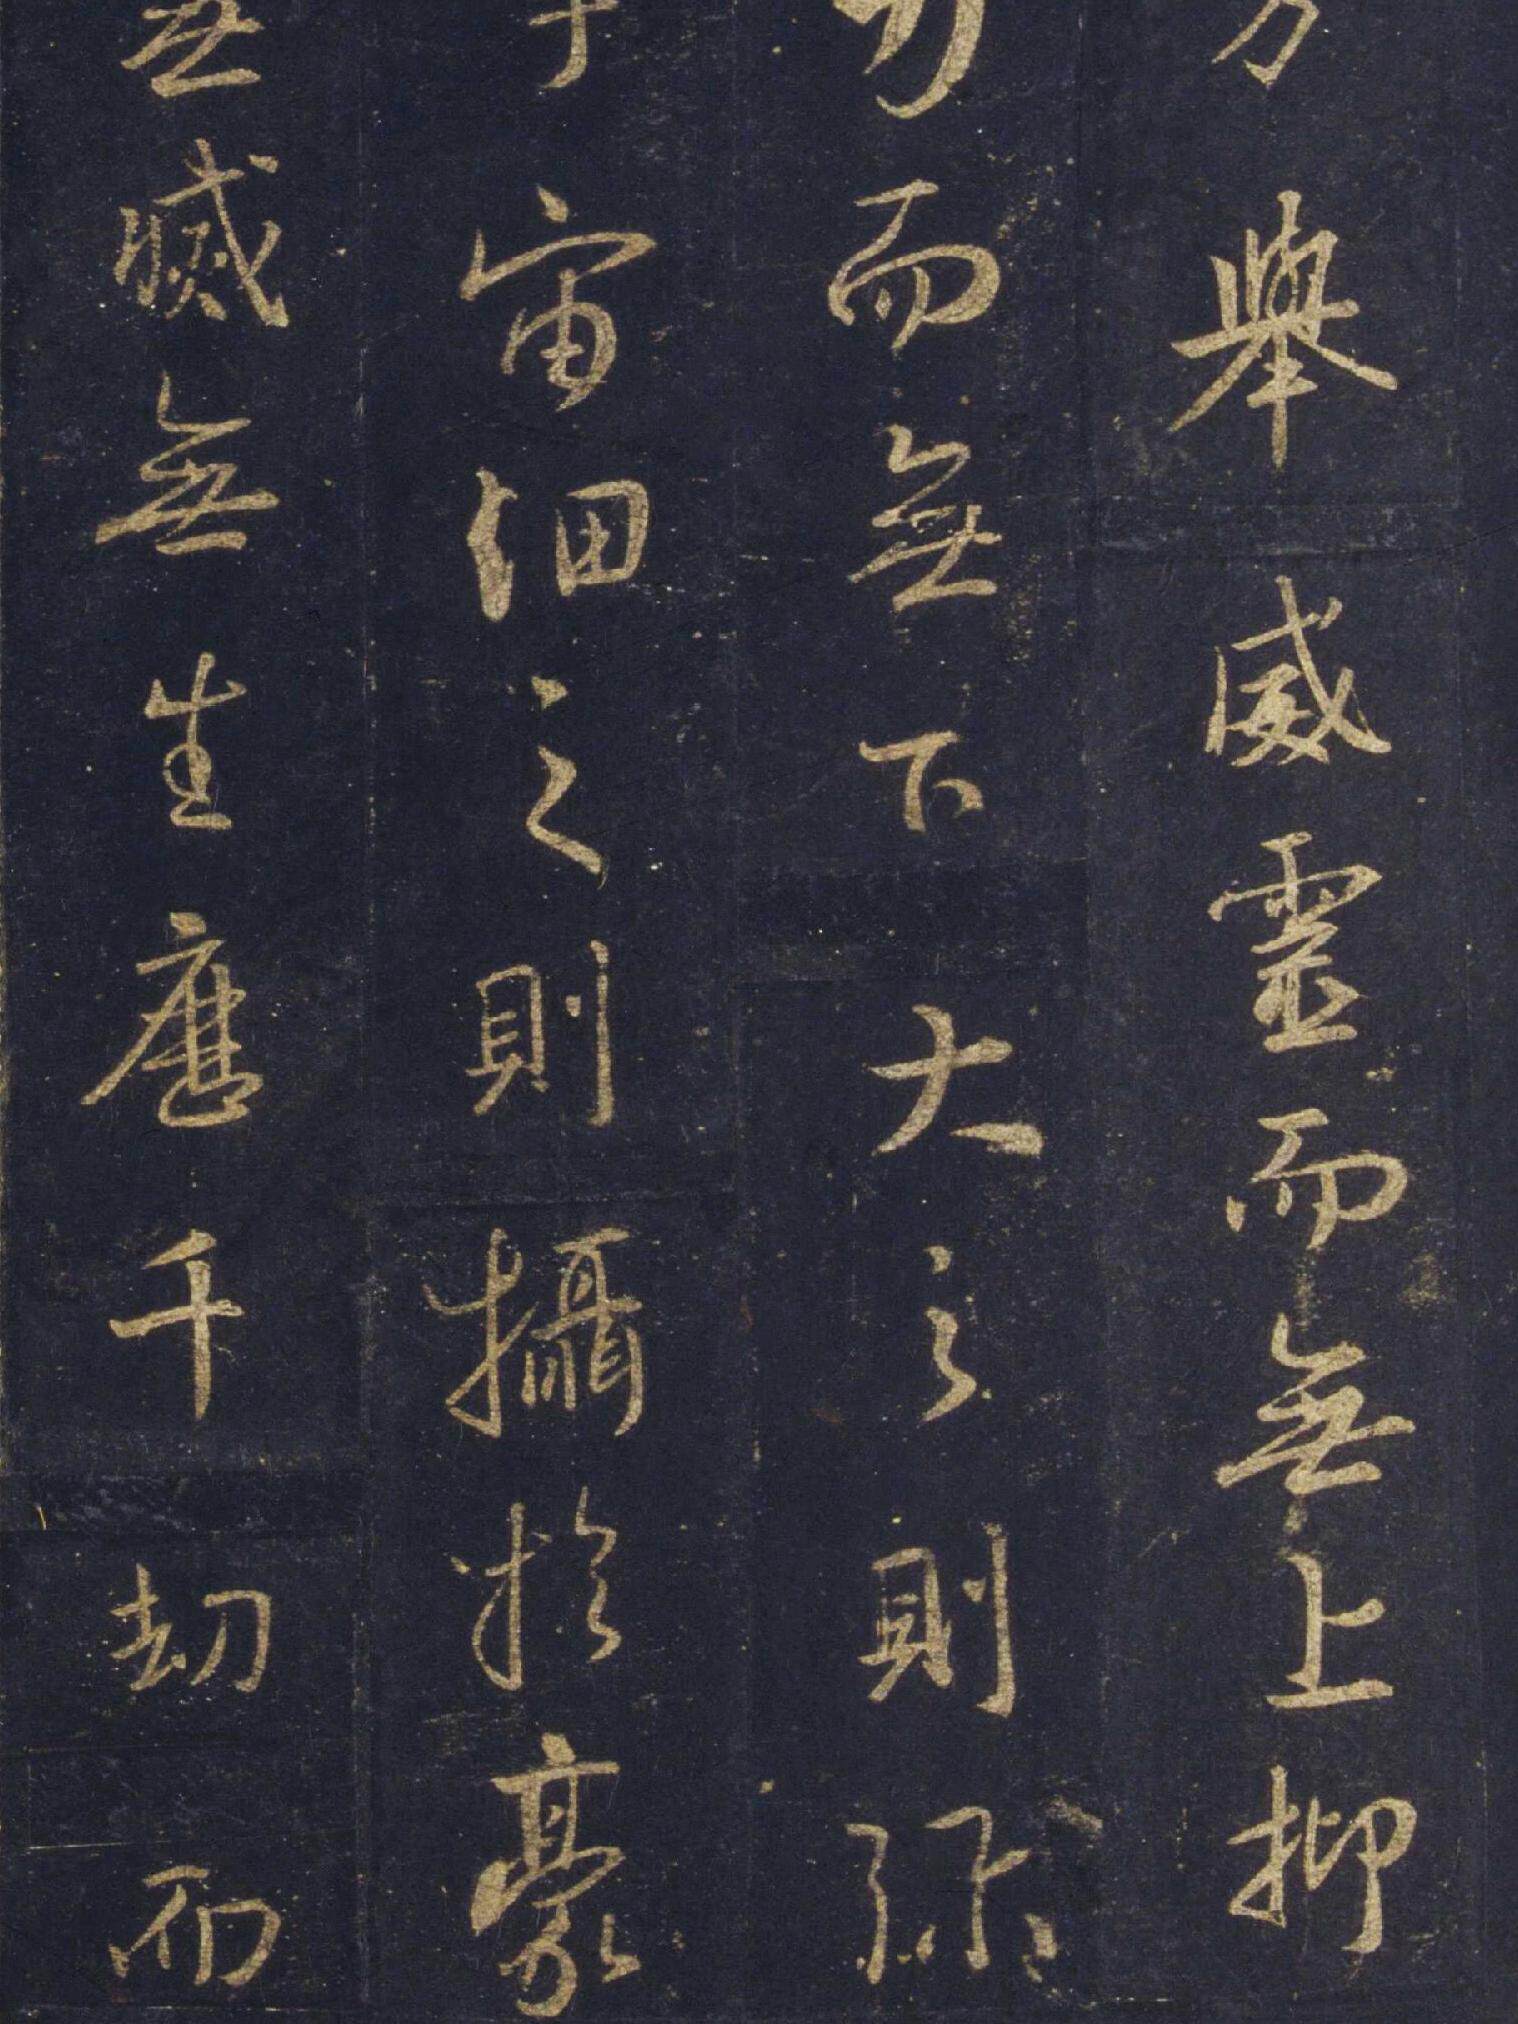 方舉威靈而無上抑
力而無下大之則弥
宇宙細之則攝於豪
無滅無生歷千劫而